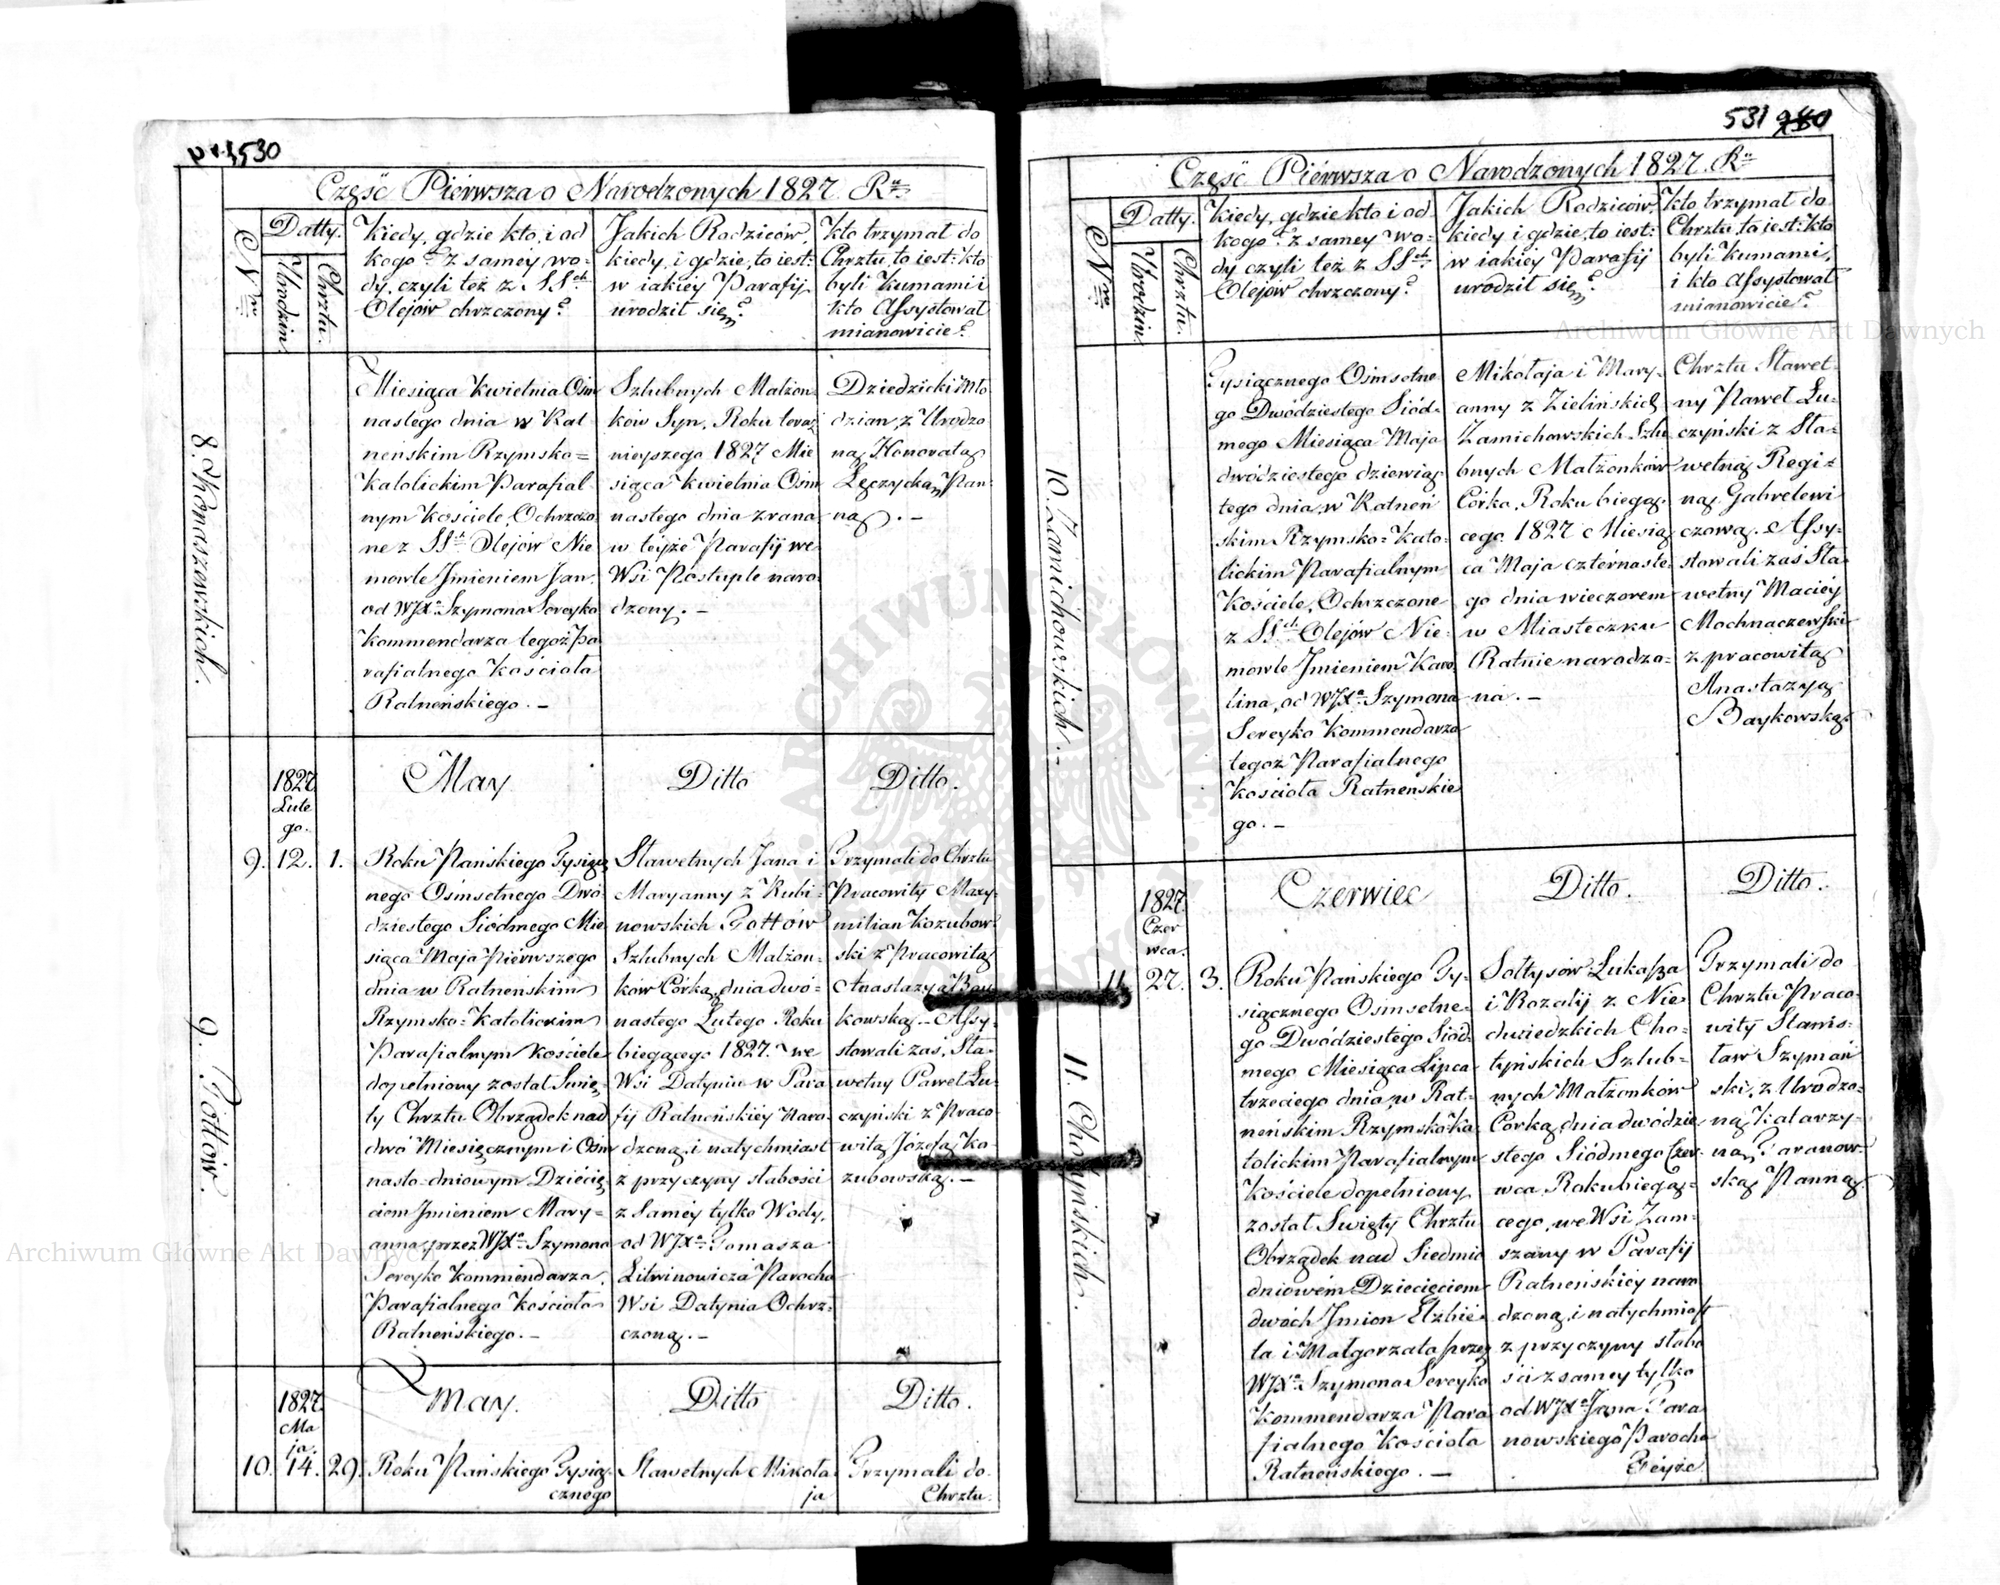 530
Część Pierwsza o Narodzonych 1827 Ru
Nr
Datty.
Urodzin
Chrztu.
Kiedy, gdzie kto, i od
kogo? z samey wo-
dy, czyli też z SSch
Olejów chrzczony?
Jakich Rodziców,
kiedy, i gdzie, to iest:
w iakiey Parafij
urodził się?
Kto trzymał do
Chrztu, to iest: kto
byli Kumami i
kto Assystował
mianowicie?
8. Komaszewskich.
Miesiąca Kwietnia Ośm
nastego dnia w Rat
neńskim Rzymsko=
Katolickim Parafial-
nym Kościele, Ochrzczo
ne z SSch Olejów Nie
mowle Jmieniem Jan,
od WJXa Szymona Sereyko
Kommendarza tegoż Pa
rafialnego Kościoła
Ratneńskiego. –
Szlubnych Małżon
ków Syn, Roku teraź
nieyszego 1827 Mie
siąca Kwietnia Ośm
nastego dnia z rana
w teyże Parafij we
Wsi Postuple naro
dzony. –
Dziedzicki Mło
dzian, z Urodzo
ną Honoratą
Łęczycką Pan-
ną. –
1827
Lute
go.
May
Ditto
Ditto.
9. 12. 1.
9. Gottów.
Roku Pańskiego Tysiącz
nego Ośmsetnego Dwó
dziestego Siódmego Mie
siąca Maja Piérwszego
dnia w Ratneńskim
Rzymsko-Katolickim
Parafialnym Kościele
dopełniony został Swię
ty Chrztu Obrządek nad
dwó Miesięcznym i Ośm
nasto-dniowym Dziecię
ciem Jmieniem Mary-
anna przez WJXa Szymona
Sereyko Kommendarza
Parafialnego Kościoła
Ratneńskiego. –
Sławetnych Jana i
Maryanny z Rubi-
nowskich Gottów
Szlubnych Małżon-
ków Córką, dnia dwó-
nastego Lutego Roku
biegącego 1827. we
Wsi Datyniu w Para
fij Ratneńskiéy naro
dzoną, i natychmiast
z przyczyny słabości
z Saméy tylko Wody,
od WJXa Tomasza
Litwinowicza Parocha
Wsi Datynia Ochrz-
czoną. –
Trzymali do Chrztu
Pracowity Maxy-
milian Kozubow
ski z Pracowitą
Anastazyą Bay
kowską. – Assy-
stowali zaś, Sła-
wetny Paweł Łu-
czyński z Praco
witą Józefą Ko-
zubowską. –
1827.
Ma
ja.
May.
Ditto
Ditto.
10. 14. 29.
Roku Pańskiego Tysią-
cznego
Sławetnych Mikoła
ja
Trzymali do
Chrztu.
531
Część Piérwsza o Narodzonych 1827. Ru
Nr
Datty.
Urodzin
Chrztu.
Kiedy, gdzie kto i od
kogo? z samey wo-
dy czyli też z SSch
Olejów chrzczony?
Jakich Rodziców,
kiedy i gdzie, to iest:
w iakiéy Parafij
urodził się?
Kto trzymał do
Chrztu, to iest: kto
byli Kumami,
i kto Assystował
mianowicie?
10. Zamichowskich. –
Tysiącznego Ośmsetne
go Dwódziestego Siód-
mego Miesiąca Maja
dwódziestego dziewią
tego dnia, w Ratneń
skim Rzymsko-Kato-
lickim Parafialnym
Kościele, Ochrzczone
z SSch Olejów Nie-
mowle Jmieniem Karo
lina, od WJXa Szymona
Sereyko Kommendarza
tegoż Parafialnego
Kościoła Ratneńskie
go. –
Mikołaja i Mary-
anny z Zielińskich
Zamichowskich Szlu
bnych Małżonków
Córka, Roku biegą-
cego 1827 Miesią
ca Maja czternaste
go dnia wieczorem
w Miasteczku
Ratnie narodzo-
na. –
Chrztu Sławet-
ny Paweł Łu-
czyński z Sła-
wetną Regi-
ną Gabrelewi
czową. Assy-
stowali zaś Sła-
wetny Maciéy
Mochnaczewski
z pracowitą
Anastazyą
Baykowską
1827.
Czer
wca.
Czerwiec
Ditto.
Ditto.
11. 27. 3.
11. Chotyńskich.
Roku Pańskiego Ty-
siącznego Ośmsetne-
go Dwódziestego Siód
mego Miesiąca Lipca
trzeciego dnia, w Rat-
neńskim Rzymsko Ka
tolickim Parafialnym
Kościele dopełniony
został Swięty Chrztu
Obrządek nad Siedmio
dniowém Dziecięciem
dwóch Jmion Elżbie
ta i Małgorzata przez
WJXa Szymona Sereyko
Kommendarza Para
fialnego Kościoła
Ratneńskiego. –
Sołtysów Łukasza
i Rozalij z Nie
dwiedzkich Cho-
tyńskich Szlub-
nych Małżonków
Córką, dnia dwódzie
stego Siódmego Czer-
wca, Roku biegą-
cego, we Wsi Zam-
szany w Parafij
Ratneńskiéy naro
dzoną, i natychmiast
z przyczyny słabo
ści z samey tylko
od WJXa Jana Tara
nowskiego Parocha
Teyże
Trzymali do
Chrztu Praco-
wity Stanis-
ław Szymań
ski, z Urodzo-
ną Katarzy-
ną Taranow-
ską Panną.
Archiwum Główne Akt Dawnych
Archiwum Główne Akt Dawnych
ARCHIWUM GŁÓWNE AKT DAWNYCH